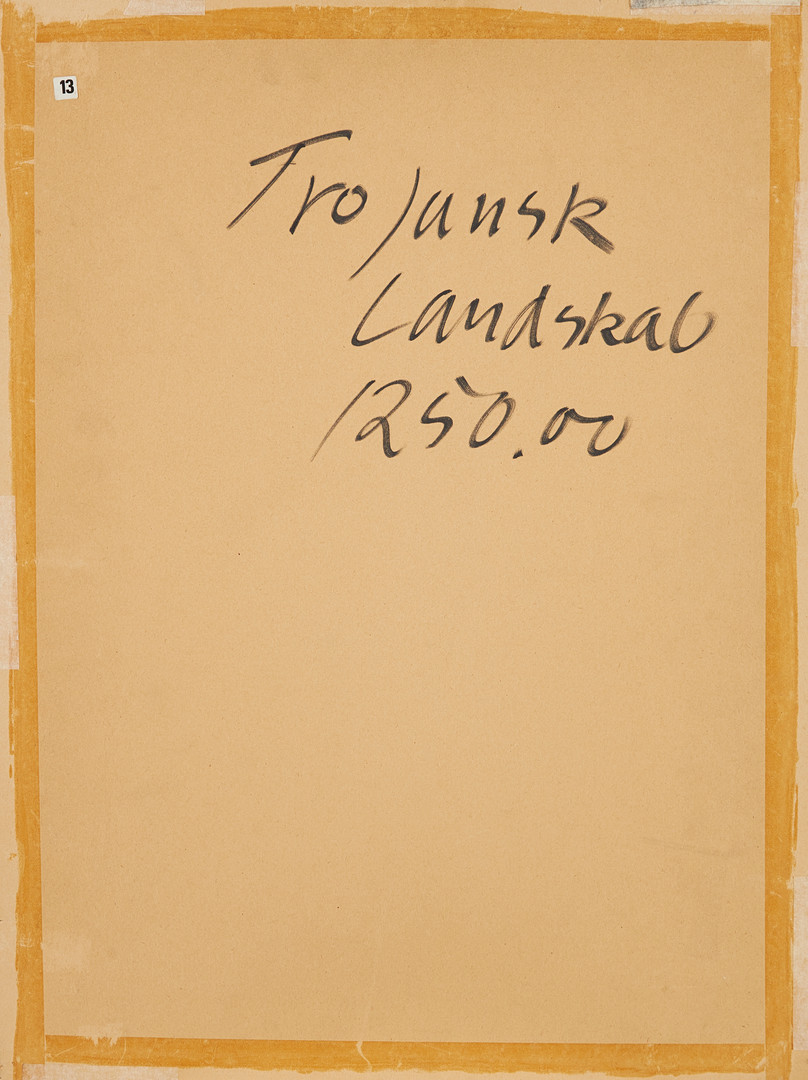 13
Trojansk
Landskab
1250.00